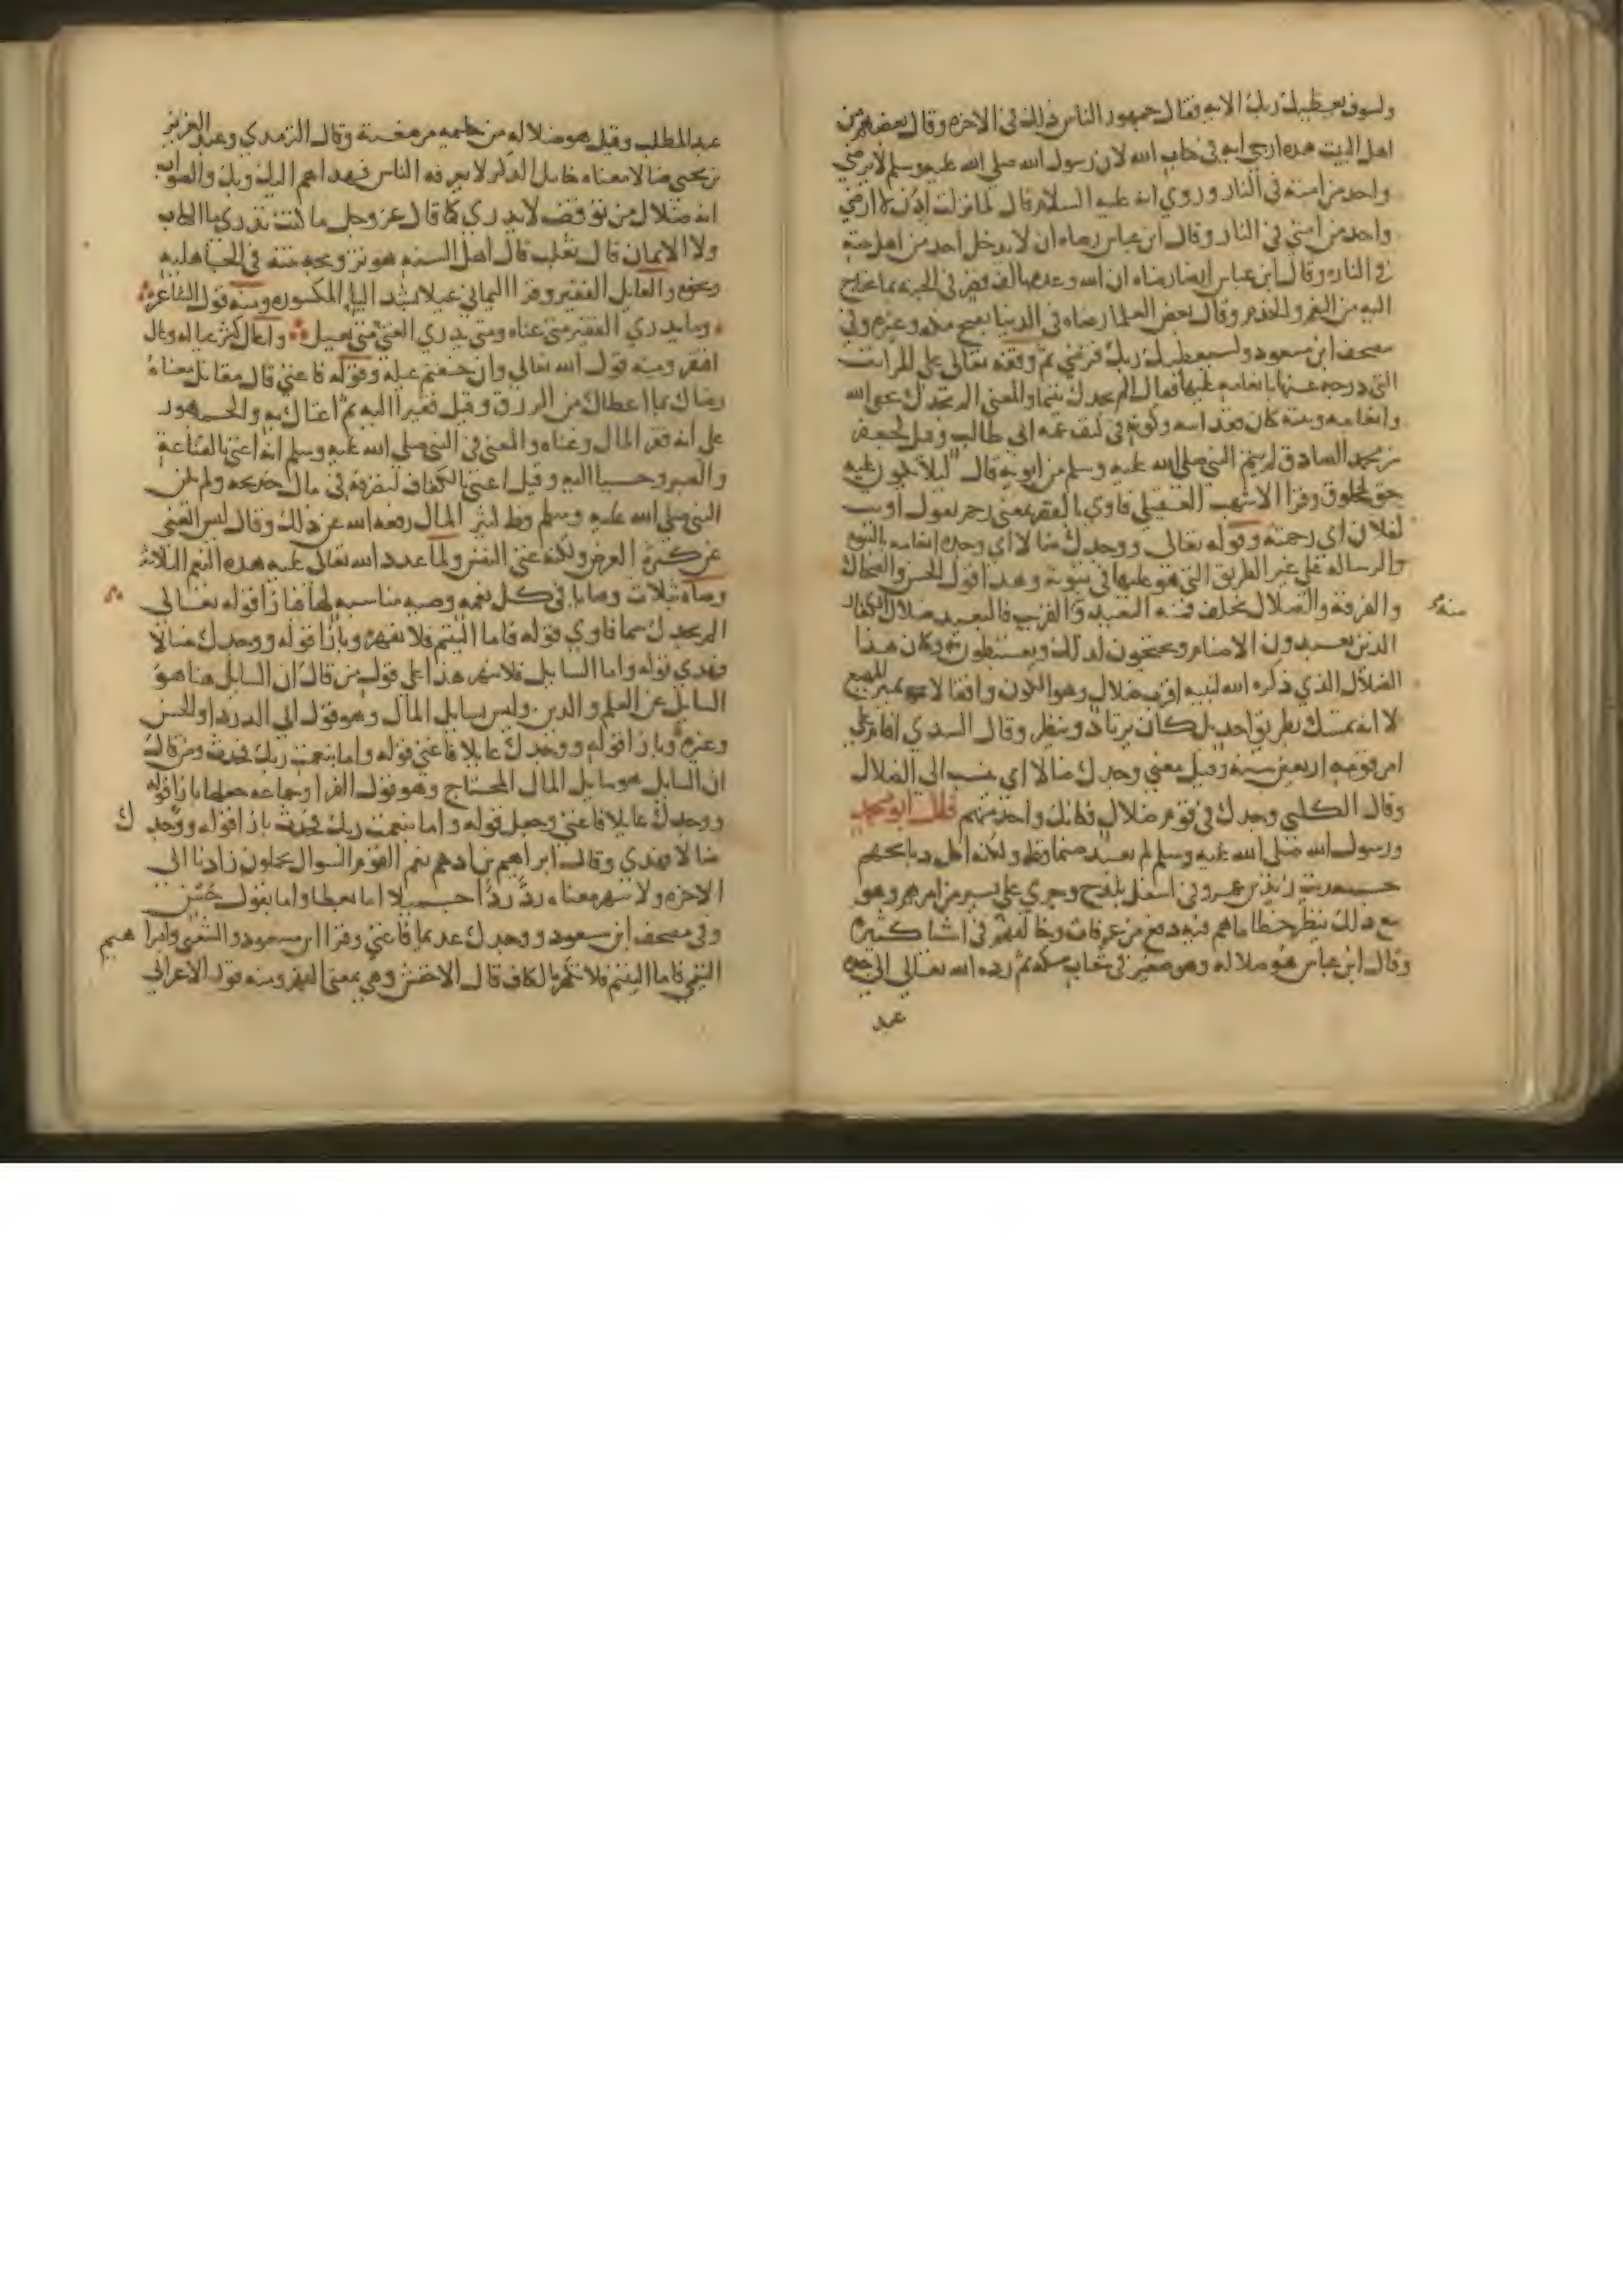 ولسوف يعطيك ربك الايه فقال جمهور الناس ذلك في الاخره وقال بعضهم من
اهل البيت هذه ارجى ايه في كتاب الله لان رسول الله صلى الله عليه وسلم لا يرضى
واحد من امته في النار وروي انه عليه السلام قال لما نزلت اذن لا ارضى
واحد من امتي في النار وقال ابن عباس رضاه ان لا يدخل احد من اهل بيته
في النار وقال ابن عباس ايضا رضاه ان الله وعده بالف قصر في الجنه بما يحتاج
اليه من النعم والخدم وقال بعض العلما رضاه في الدنيا بفتح مكه وغيره وفي
مصحف ابن مسعود ولسيعطيك ربك فترضى ثم وقفه تعالى على المراتب
التي درجه عنها بانعامه عليه فقال الم يجدك يتيما والمعنى الم يجدك
وانعامه ويتمه كان فقد ابيه وكونه في كنف عمه ابي طالب وقيل لجعفر
بن محمد الصادق لم يتم النبي صلى الله عليه وسلم من ابويه قال ليلا يكون عليه
حق لمخلوق وقرا الاشهب العقيلي فاوى بالقصر بمعنى رحم يقول اويت
لفلان اي رحمته وقوله تعالى ووجدك ضالا اي وجده انعامه بالنبوه
والرساله على غير الطريق التي هو عليها في نبوته وهذا قول الحسن والضحاك
وا لفرقه والضلال يختلف فمنه البعيد والقريب فالبعيد ضلال الكفار
منه
الذين يعبدون الاصنام ويحتجون لذلك ويغتبطون به وكان هذا
الضلال الذي ذكره الله لنبيه اقرب ضلال وهو الكون واقفا لا يميز المهيع
لا انه تمسك بطريق احد بل كان يرتاد وينظر وقال السدي اقام على
امر قومه اربعين سنه وقيل معنى وجدك ضالا اي تنسب الى الضلال
وقال الكلبي وجدك في قوم ضلال فكانك واحد منهم قال ابو محمد
ورسول الله صلى الله عليه وسلم لم يعبد صنما قط ولكنه اكل ذبايحهم
حسب حديث زيد بن عمرو في اسفل بلدح وجرى على يسير من امرهم وهو
مع ذلك ينظر خطا ما هم فيه ودفع من عرفات وخالفهم في اشيا كثيره
وقال ابن عباس هو ضلاله وهو صغير في شعاب مكه ثم رده الله تعالى الى جده
عبد
عبد المطلب وقيل هو ضلاله من حليمه مرضعته وقال الترمذي وعبد العزيز
بن يحيى ضالا معناه خامل الذكر لا يعرفه الناس فهداهم اليك ربك والصواب
انه ضلال من توقف لا يدري كما قال عز وجل ما كنت تدري ما الكتاب
ولا الايمان قال ثعلب قال اهل السنه هو تزويجه بنته في الجاهليه
ونحوه والعايل الفقير وقرا اليماني عيلا بشد اليا المكسوره ومنه قول الشاعر
وما يدري الفقير متى غناه وما يدري الغني متى يعيل واعال كثر عياله وعال
افتقر ومنه قول الله تعالى وان خفتم عيلة وقوله فاغنى قال مقاتل معناه
رضاك بما اعطاك من الرزق وقيل فقيرا اليه ثم اغناك به والجمهور
على انه فقر المال وغناه والمعنى في النبي صلى الله عليه وسلم انه اغني بالقناعة
والصبر وحببا اليه وقيل اغني بالكفاف لتصرفه في مال خديجه ولم يكن
النبي صلى الله عليه وسلم قط كثير المال رفعه الله عن ذلك وقال ليس الغنى
عن كثرة العرض ولكنه غنى النفس ولما عدد الله تعالى عليه هذه النعم الثلاث
وصاه بثلاث وصايا في كل نعمه وصيه مناسبه لها فبازا قوله تعالى
الم يجدك يتيما فاوى قوله فاما اليتيم فلا تقهر وبازا قوله ووجدك ضالا
فهدى قوله واما السايل فلا تنهر هذا على قول من قال ان السايل هنا هو
السايل عن العلم والدين وليس بسايل المال وهو قول ابي الدرداو الحسن
وغيره وبازا قوله ووجدك عايلا فاغنى قوله واما بنعمت ربك فحدث ومن قال
ان السايل هو سايل المال المحتاج وهو قول الفرا وجماعه جعلها بازا قوله
ووجدك عايلا فاغنى وجعل قوله واما بنعمت ربك فحدث بازا قوله ووجدك
ضالا فهدى وقال ابراهيم بن ادهم نعم القوم السوال يحملون زادنا الى
الاخره ولا تنهر معناه رد ردا جميلا اما بعطا واما بقول حسن
وفي مصحف ابن مسعود ووجدك عديما فاغنى وقرا ابن مسعود والشعبي وابراهيم
التيمي فاما اليتيم فلا تكهر بالكاف قال الاخفش وهي بمعنى القهر ومنه قول الاعرابي